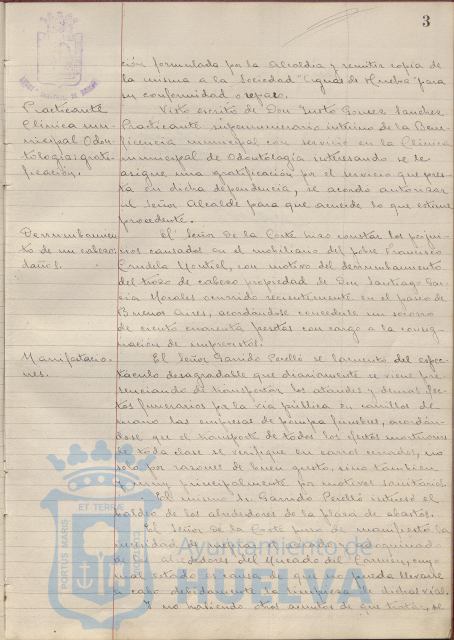 3
ción formulada por la Alcaldía y remitir copia de
la misma a la Sociedad "Aguas de Huelva" para
su conformidad o reparo.
Practicante
Clínica mu-
nicipal Odon-
tología: grati-
ficación.
Visto escrito de Don Justo Gomez Sanchez
Practicante supernumerario interino de la Bene-
ficencia municipal con servicio en la Clínica
municipal de Odontología interesando se le
asigne una gratificación por el servicio que pres-
ta en dicha dependencia, se acordó autorizar
al Señor Alcalde para que acuerde lo que estime
procedente.
Derrumbamien-
to de un cabezo:
daños.
El Señor de la Corte hizo constar los perjui-
cios causados en el mobiliario del pobre Francisco
Montiel, con motivo del derrumbamiento
del trozo de cabezo propiedad de Don Santiago Gar-
cia Morales ocurrido recientemente en el paseo de
Buenos Aires, acordándose concederle un socorro
de ciento cuarenta pesetas con cargo a la consig-
nación de imprevistos.
Manifestacio-
nes.
El Señor Garrido Perelló se lamentó del espec-
táculo desagradable que diariamente se viene pre-
senciando de transportar los ataúdes y demás efec-
tos funerarios por la vía pública en carrillos de
mano las empresas de pompas fúnebres, acordán-
dose que el transporte de todos los efectos mortuorios
de toda clase se verifique en carros cerrados, no
solo por razones de buen gusto, sino también
y muy principalmente por motivos sanitarios.
El mismo Sr. Garrido Perelló interesó el
baldeo de los alrededores de la plaza de abastos.
El Señor de la Corte puso de manifiesto la
necesidad de que se adoquinado
de los alrededores del Mercado del Carmen, cuyo
mal estado es causa de que no pueda llevarse
a cabo debidamente la limpieza de dicho vial.
Y no habiendo otros asuntos de que tratar, se
ET TERRAE
PORTUS MARIS
CUSTODIA
Ayuntamiento de
HUELVA